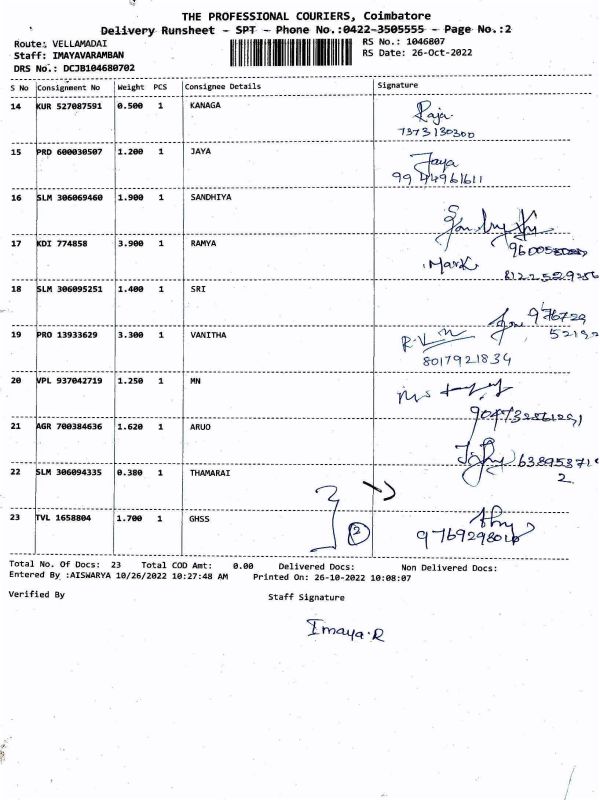 THE PROFESSIONAL COURIERS, Coimbatore
Delivery Runsheet - SPT - Phone No.:0422-3505555 - Page No.:2
Route: VELLAMADAI RS No.: 1046807
Staff: IMAYAVARAMBAN RS Date: 26-Oct-2022
DRS No.: DCJB104680702
S No Consignment No Weight PCS Consignee Details Signature
14 KUR 527087591 0.500 1 KANAGA Raja
7373130300
15 PRD 600030507 1.200 1 JAYA Jaya
9944961611
16 SLM 306069460 1.900 1 SANDHIYA
17 KDI 774858 3.900 1 RAMYA
Mark 8122529256
18 SLM 306095251 1.400 1 SRI
976729
52192
19 PRO 13933629 3.300 1 VANITHA
8017921834
20 VPL 937042719 1.250 1 MN
21 AGR 700384636 1.620 1 ARUO
22 SLM 306094335 0.380 1 THAMARAI
2
23 TVL 1658804 1.700 1 GHSS
2
Total No. Of Docs: 23 Total COD Amt: 0.00 Delivered Docs: Non Delivered Docs:
Entered By :AISWARYA 10/26/2022 10:27:48 AM Printed On: 26-10-2022 10:08:07
Verified By Staff Signature
Imaya.R